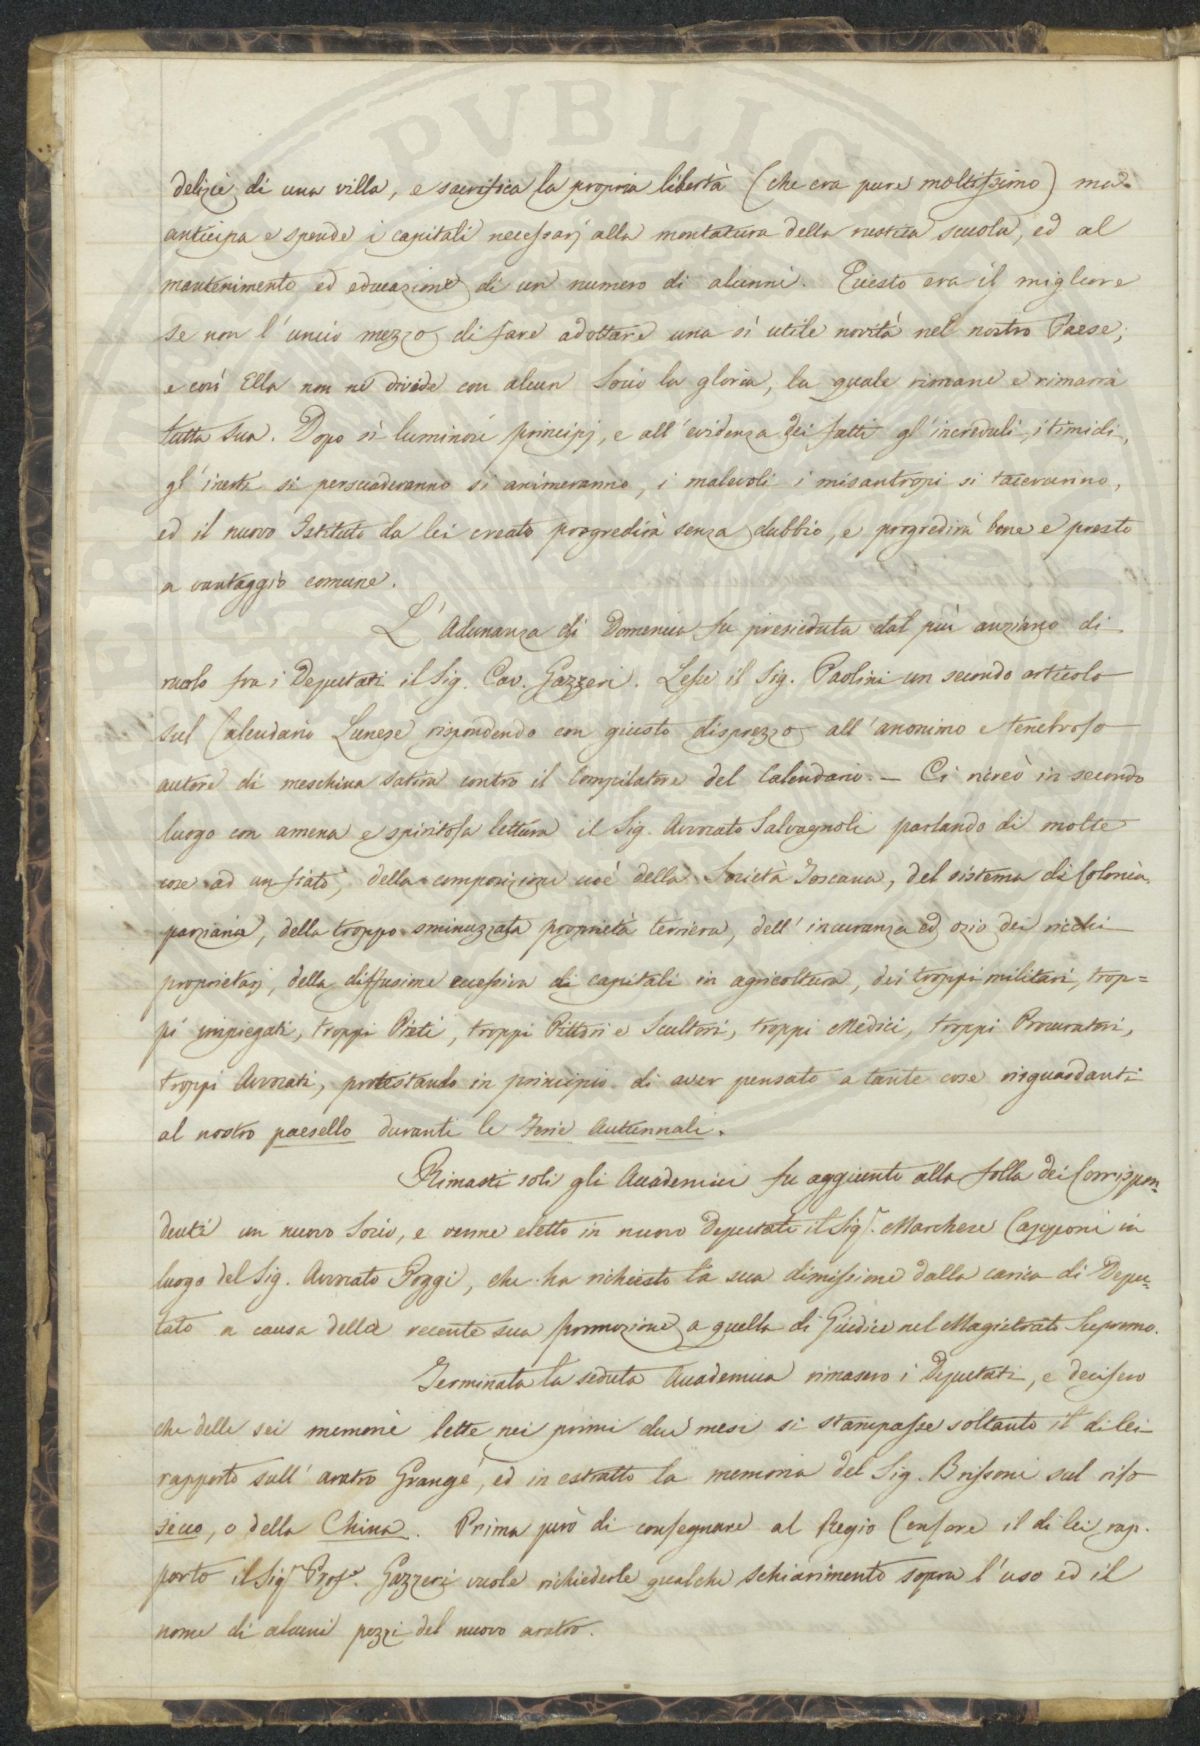 PVBLIC
delizie di una villa, e sacrifica la propria libertà (che era pure moltissimo) ma
anticipa e spende i capitali necessarj alla montatura della rustica scuola, ed al
mantenimento ed educazione di un numero di alunni. Questo era il migliore
se non l'unico mezzo di fare adottare una sì utile novità nel nostro Paese;
e così Ella non ne divide con alcun Socio la gloria, la quale rimane e rimarrà
tutta sua. Dopo sì luminosi principj, e all'evidenza dei fatti gl'increduli, i timidi,
gl'inerti si persuaderanno si animeranno, i malevoli i misantropi si taceranno,
ed il nuovo Istituto da lei creato progredirà senza dubbio, e progredirà bene e presto
a vantaggio comune.
L'Adunanza di Domenica fu presieduta dal più anziano di
ruolo fra i Deputati il Sig. Cav. Gazzeri. Lesse il Sig. Paolini un secondo articolo
sul Calendario Lunese rispondendo con giusto disprezzo all'anonimo e tenebroso
autore di meschina satira contro il Compilatore del Calendario. — Ci ricreò in secondo
luogo con amena e spiritosa lettura il Sig. Avvocato Salvagnoli parlando di molte
cose ad un fiato, della composizione cioè della Società Toscana, del sistema di Colonia
parziaria, della troppo sminuzzata proprietà terriera, dell'incuranza ed ozio dei ricchi
proprietarj, della diffusione eccessiva di capitali in agricoltura, dei troppi militari, trop=
pi impiegati, troppi Preti, troppi Pittori e Scultori, troppi Medici, troppi Procuratori,
troppi Avvocati, protestando in principio di aver pensato a tante cose risguardanti
al nostro paesello duranti le Ferie Autunnali.
Rimasti soli gli Accademici fu aggiunto alla folla dei Corrispon=
denti un nuovo Socio, e venne eletto in nuovo Deputato il Sigr. Marchese Capponi in
luogo del Sig. Avvocato Poggi, che ha richiesto la sua dimissione dalla carica di Depu=
tato a causa della recente sua promozione a quella di Giudice nel Magistrato Supremo.
Terminata la seduta Accademica rimasero i Deputati, e decisero
che delle sei memorie lette nei primi due mesi si stampasse soltanto il di lei
rapporto sull'aratro Grangé, ed in estratto la memoria del Sig. Brissoni sul riso
secco, o della China. Prima però di consegnare al Regio Censore il di lei rap-
porto il Sigr. Profr. Gazzeri vuole richiederle qualche schiarimento sopra l'uso ed il
nome di alcuni pezzi del nuovo aratro.